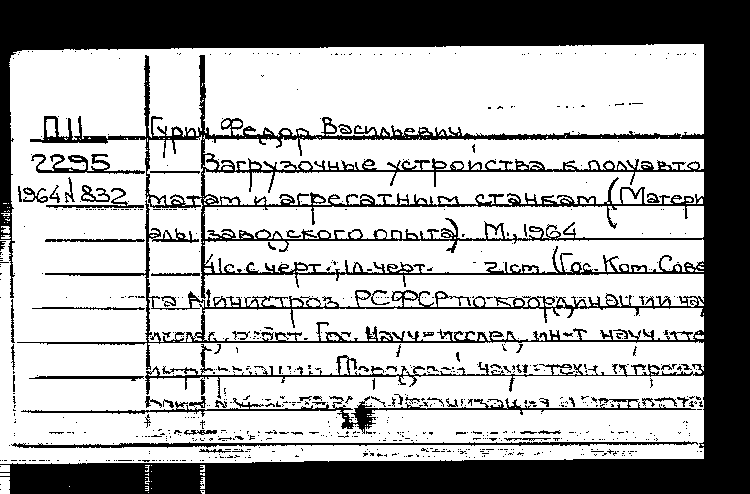 П11 Гурин, Федор Васильевич.
2295 Загрузочные устройства к полуавто
1964 № 832 матам и агрегатным станкам (Матери
алы заводского опыта). М., 1964
41с. с черт.; 1л. черт. 21cm (Гос. Ком. Сове
та Министров РСФСР по координации нау
исслед. работ. Гос. науч-исслед. ин-т науч. и те
информации. Передовой науч-техн. и произв
опыт Механизация и автоматиза